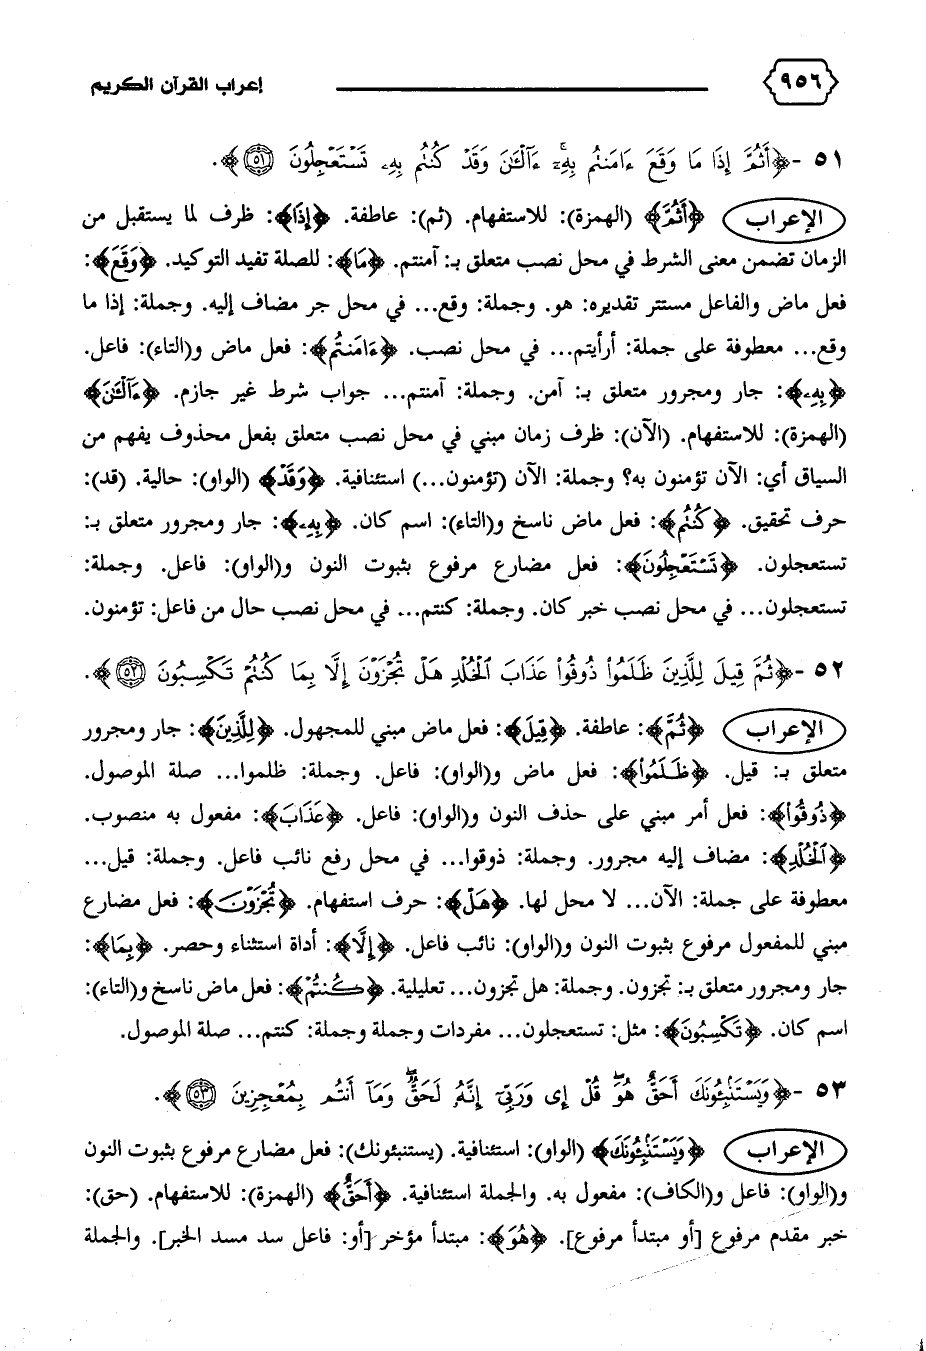 ٩٥٦ إعراب القرآن الكريم
٥١ -﴿أَثُمَّ إِذَا مَا وَقَعَ ءَامَنتُم بِهِۦٓ ءَآلْـَٰٔنَ وَقَدْ كُنتُم بِهِۦ تَسْتَعْجِلُونَ ۝٥١﴾.
الإعراب ﴿أَثُمَّ﴾ (الهمزة): للاستفهام. (ثم): عاطفة. ﴿إِذَا﴾: ظرف لما يستقبل من
الزمان تضمن معنى الشرط في محل نصب متعلق بـ: آمنتم. ﴿مَا﴾: للصلة تفيد التوكيد. ﴿وَقَعَ﴾:
فعل ماض والفاعل مستتر تقديره: هو. وجملة: وقع... في محل جر مضاف إليه. وجملة: إذا ما
وقع... معطوفة على جملة: أرأيتم... في محل نصب. ﴿ءَامَنتُم﴾: فعل ماض و(التاء): فاعل.
﴿بِهِۦ﴾: جار ومجرور متعلق بـ: آمن. وجملة: آمنتم... جواب شرط غير جازم. ﴿ءَآلْـَٰٔنَ﴾
(الهمزة): للاستفهام. (الآن): ظرف زمان مبني في محل نصب متعلق بفعل محذوف يفهم من
السياق أي: الآن تؤمنون به؟ وجملة: الآن (تؤمنون...) استئنافية. ﴿وَقَدْ﴾ (الواو): حالية. (قد):
حرف تحقيق. ﴿كُنتُم﴾: فعل ماض ناسخ و(التاء): اسم كان. ﴿بِهِۦ﴾: جار ومجرور متعلق بـ:
تستعجلون. ﴿تَسْتَعْجِلُونَ﴾: فعل مضارع مرفوع بثبوت النون و(الواو): فاعل. وجملة:
تستعجلون... في محل نصب خبر كان. وجملة: كنتم... في محل نصب حال من فاعل: تؤمنون.
٥٢ -﴿ثُمَّ قِيلَ لِلَّذِينَ ظَلَمُوا۟ ذُوقُوا۟ عَذَابَ ٱلْخُلْدِ هَلْ تُجْزَوْنَ إِلَّا بِمَا كُنتُمْ تَكْسِبُونَ ۝٥٢﴾.
الإعراب ﴿ثُمَّ﴾: عاطفة. ﴿قِيلَ﴾: فعل ماض مبني للمجهول. ﴿لِلَّذِينَ﴾: جار ومجرور
متعلق بـ: قيل. ﴿ظَلَمُوا۟﴾: فعل ماض و(الواو): فاعل. وجملة: ظلموا... صلة الموصول.
﴿ذُوقُوا۟﴾: فعل أمر مبني على حذف النون و(الواو): فاعل. ﴿عَذَابَ﴾: مفعول به منصوب.
﴿ٱلْخُلْدِ﴾: مضاف إليه مجرور. وجملة: ذوقوا... في محل رفع نائب فاعل. وجملة: قيل...
معطوفة على جملة: الآن... لا محل لها. ﴿هَلْ﴾: حرف استفهام. ﴿تُجْزَوْنَ﴾: فعل مضارع
مبني للمفعول مرفوع بثبوت النون و(الواو): نائب فاعل. ﴿إِلَّا﴾: أداة استثناء وحصر. ﴿بِمَا﴾:
جار ومجرور متعلق بـ: تجزون. وجملة: هل تجزون... تعليلية. ﴿كُنتُمْ﴾: فعل ماض ناسخ و(التاء):
اسم كان. ﴿تَكْسِبُونَ﴾: مثل: تستعجلون... مفردات وجملة وجملة: كنتم... صلة الموصول.
٥٣ -﴿وَيَسْتَنۢبِـُٔونَكَ أَحَقٌّ هُوَ ۖ قُلْ إِى وَرَبِّىٓ إِنَّهُۥ لَحَقٌّ ۖ وَمَآ أَنتُم بِمُعْجِزِينَ ۝٥٣﴾.
الإعراب ﴿وَيَسْتَنۢبِـُٔونَكَ﴾ (الواو): استئنافية. (يستنبئونك): فعل مضارع مرفوع بثبوت النون
و(الواو): فاعل و(الكاف): مفعول به. والجملة استئنافية. ﴿أَحَقٌّ﴾ (الهمزة): للاستفهام. (حق):
خبر مقدم مرفوع [أو مبتدأ مرفوع]. ﴿هُوَ﴾: مبتدأ مؤخر [أو: فاعل سد مسد الخبر]. والجملة